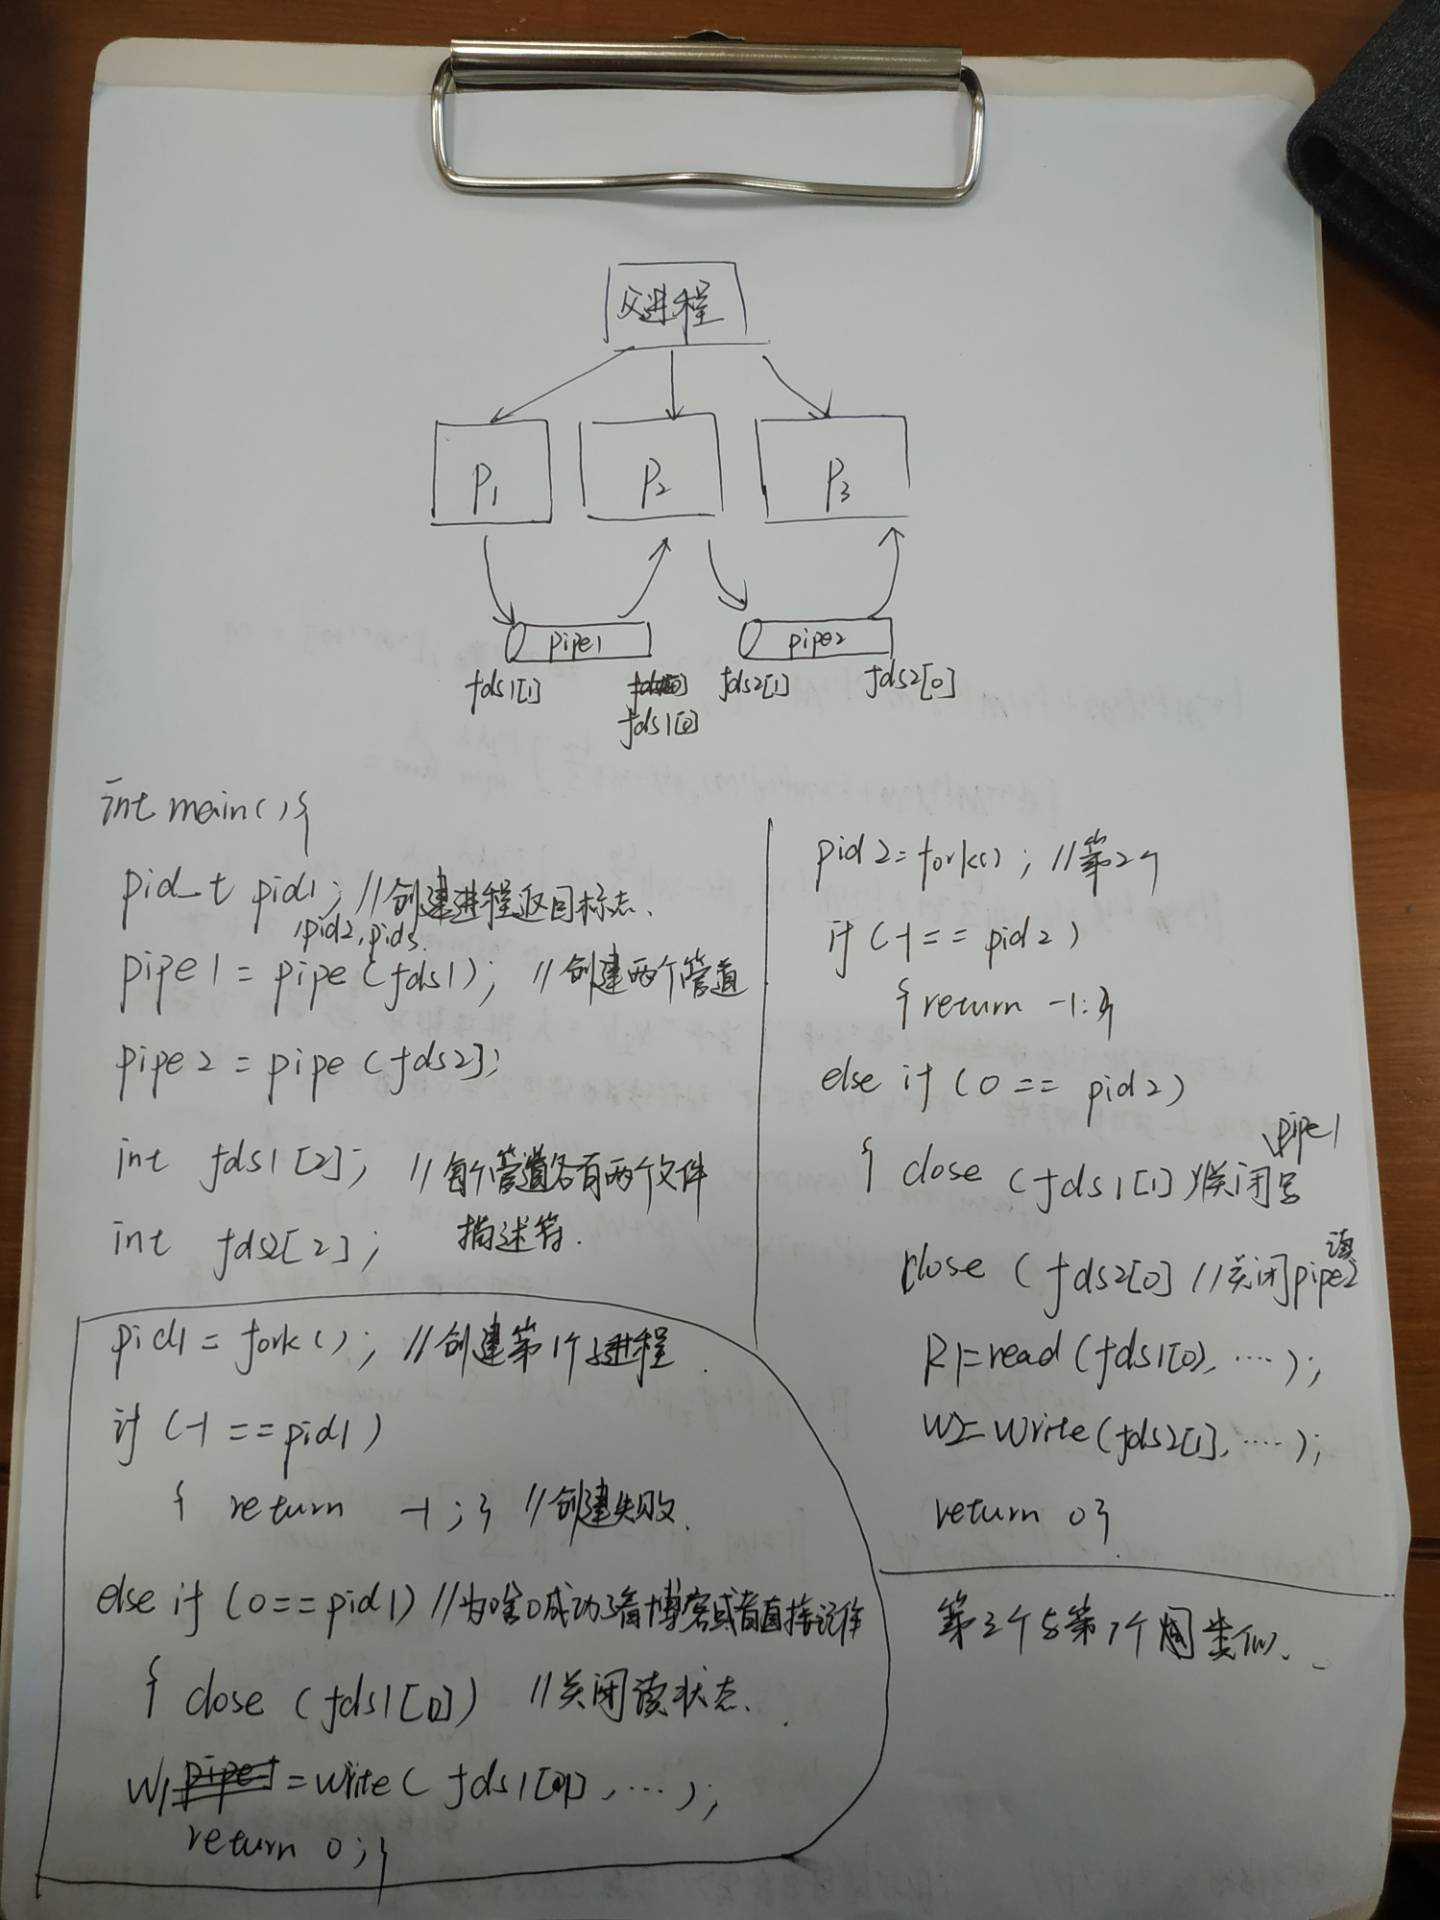 父进程
P1 P2 P3
pipe1 pipe2
fds1[1] fds2[1] fds2[0]
fds1[0]
int main(){
pid_t pid1; //创建进程返回标志.
,pid2,pid3.
pipe1 = pipe(fds1); //创建两个管道
pipe2 = pipe(fds2);
int fds1[2]; //每个管道各有两个文件
描述符.
int fds2[2];
pid1 = fork(); //创建第1个子进程.
if (-1 == pid1)
{ return -1;} //创建失败.
else if (0==pid1) //为啥0成功了看博客或者直接记住
{ close (fds1[0]) //关闭读状态.
W1 = write( fds1[1], ...);
return 0;}
pid2=fork(); //第2个
if (-1 == pid2)
{ return -1;}
else if (0 == pid2)
pipe1
{ close (fds1[1]) //关闭写
读
close (fds2[0] //关闭pipe2
R1=read(fds1[0), ....);
W2=write(fds2[1], ....);
return 0}
第3个与第1个类似.